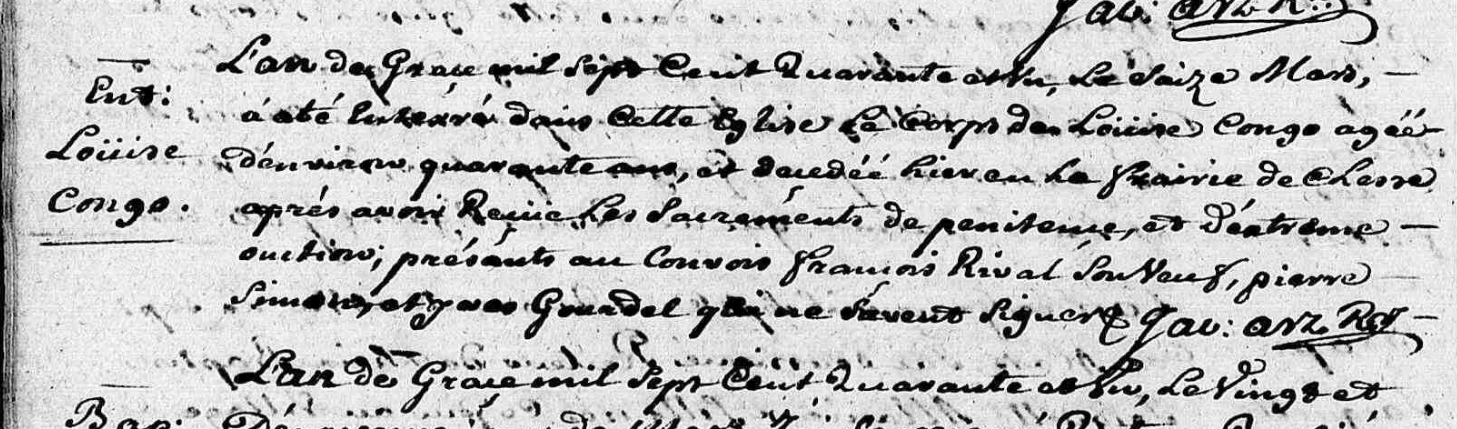 Jac: arz Rr:
L'an de Grace mil sept Cent Quarante et Un, Le Saize Mars,
Ent:
à eté Enterré dans Cette Eglise Le Corps de Loüise Congo agéé
Loüise
d'environ quarante ans, et decedéé hier en La frairie de
Congo.
aprés avoir Reçue Les Sacrements de penitence, et d'éxtreme
onction; présents au Convois francois Rival Son Veuf, pierre
Simon, et yves Gourdel qui ne Sávent Signer Jac: arz Rr
L'an de Grace mil Sept Cent Quarante et Un, Le Vingt et
Bap: